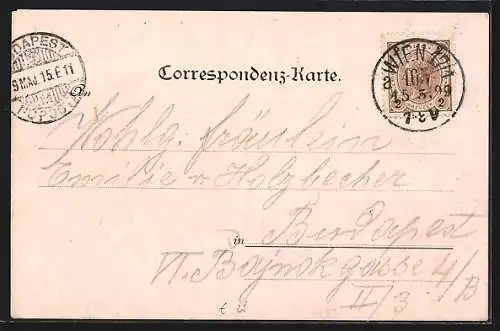 BUDAPEST
9 MAJ. 15. E 11
FŐPOSTA
WIEN
15. 5. 99
2
2
Correspondenz-Karte.
An
Wohlg. Fräulein
Emilie v Holzbecher
in Budapest
VI. Bajnokgasse 4/B
II/3